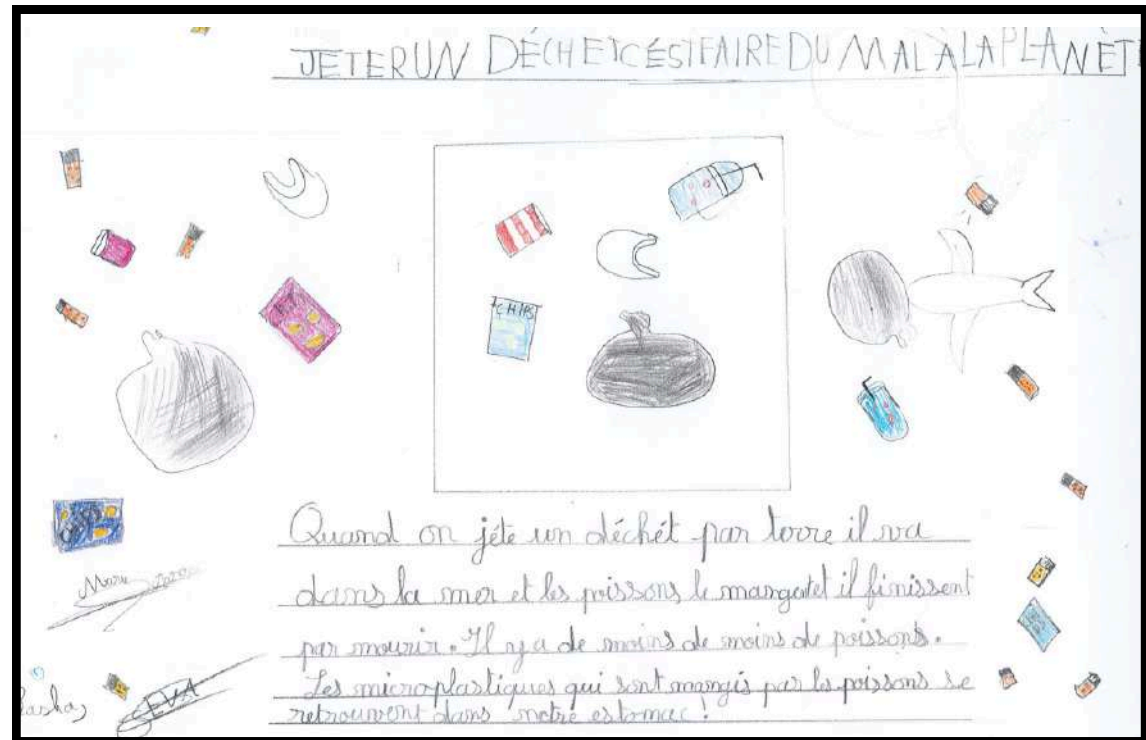 JETER UN DÉCHET CÉST FAIRE DU MAL À LA PLANÈT
CHIPS
Quand on jéte un déchét par terre il va
dans la mer et les poissons le mangent et il finissent
par mourir. Il y a de moins de moins de poissons.
Les microplastiques qui sont mangés par les poissons se
retrouvent dans notre estomac !
EVA